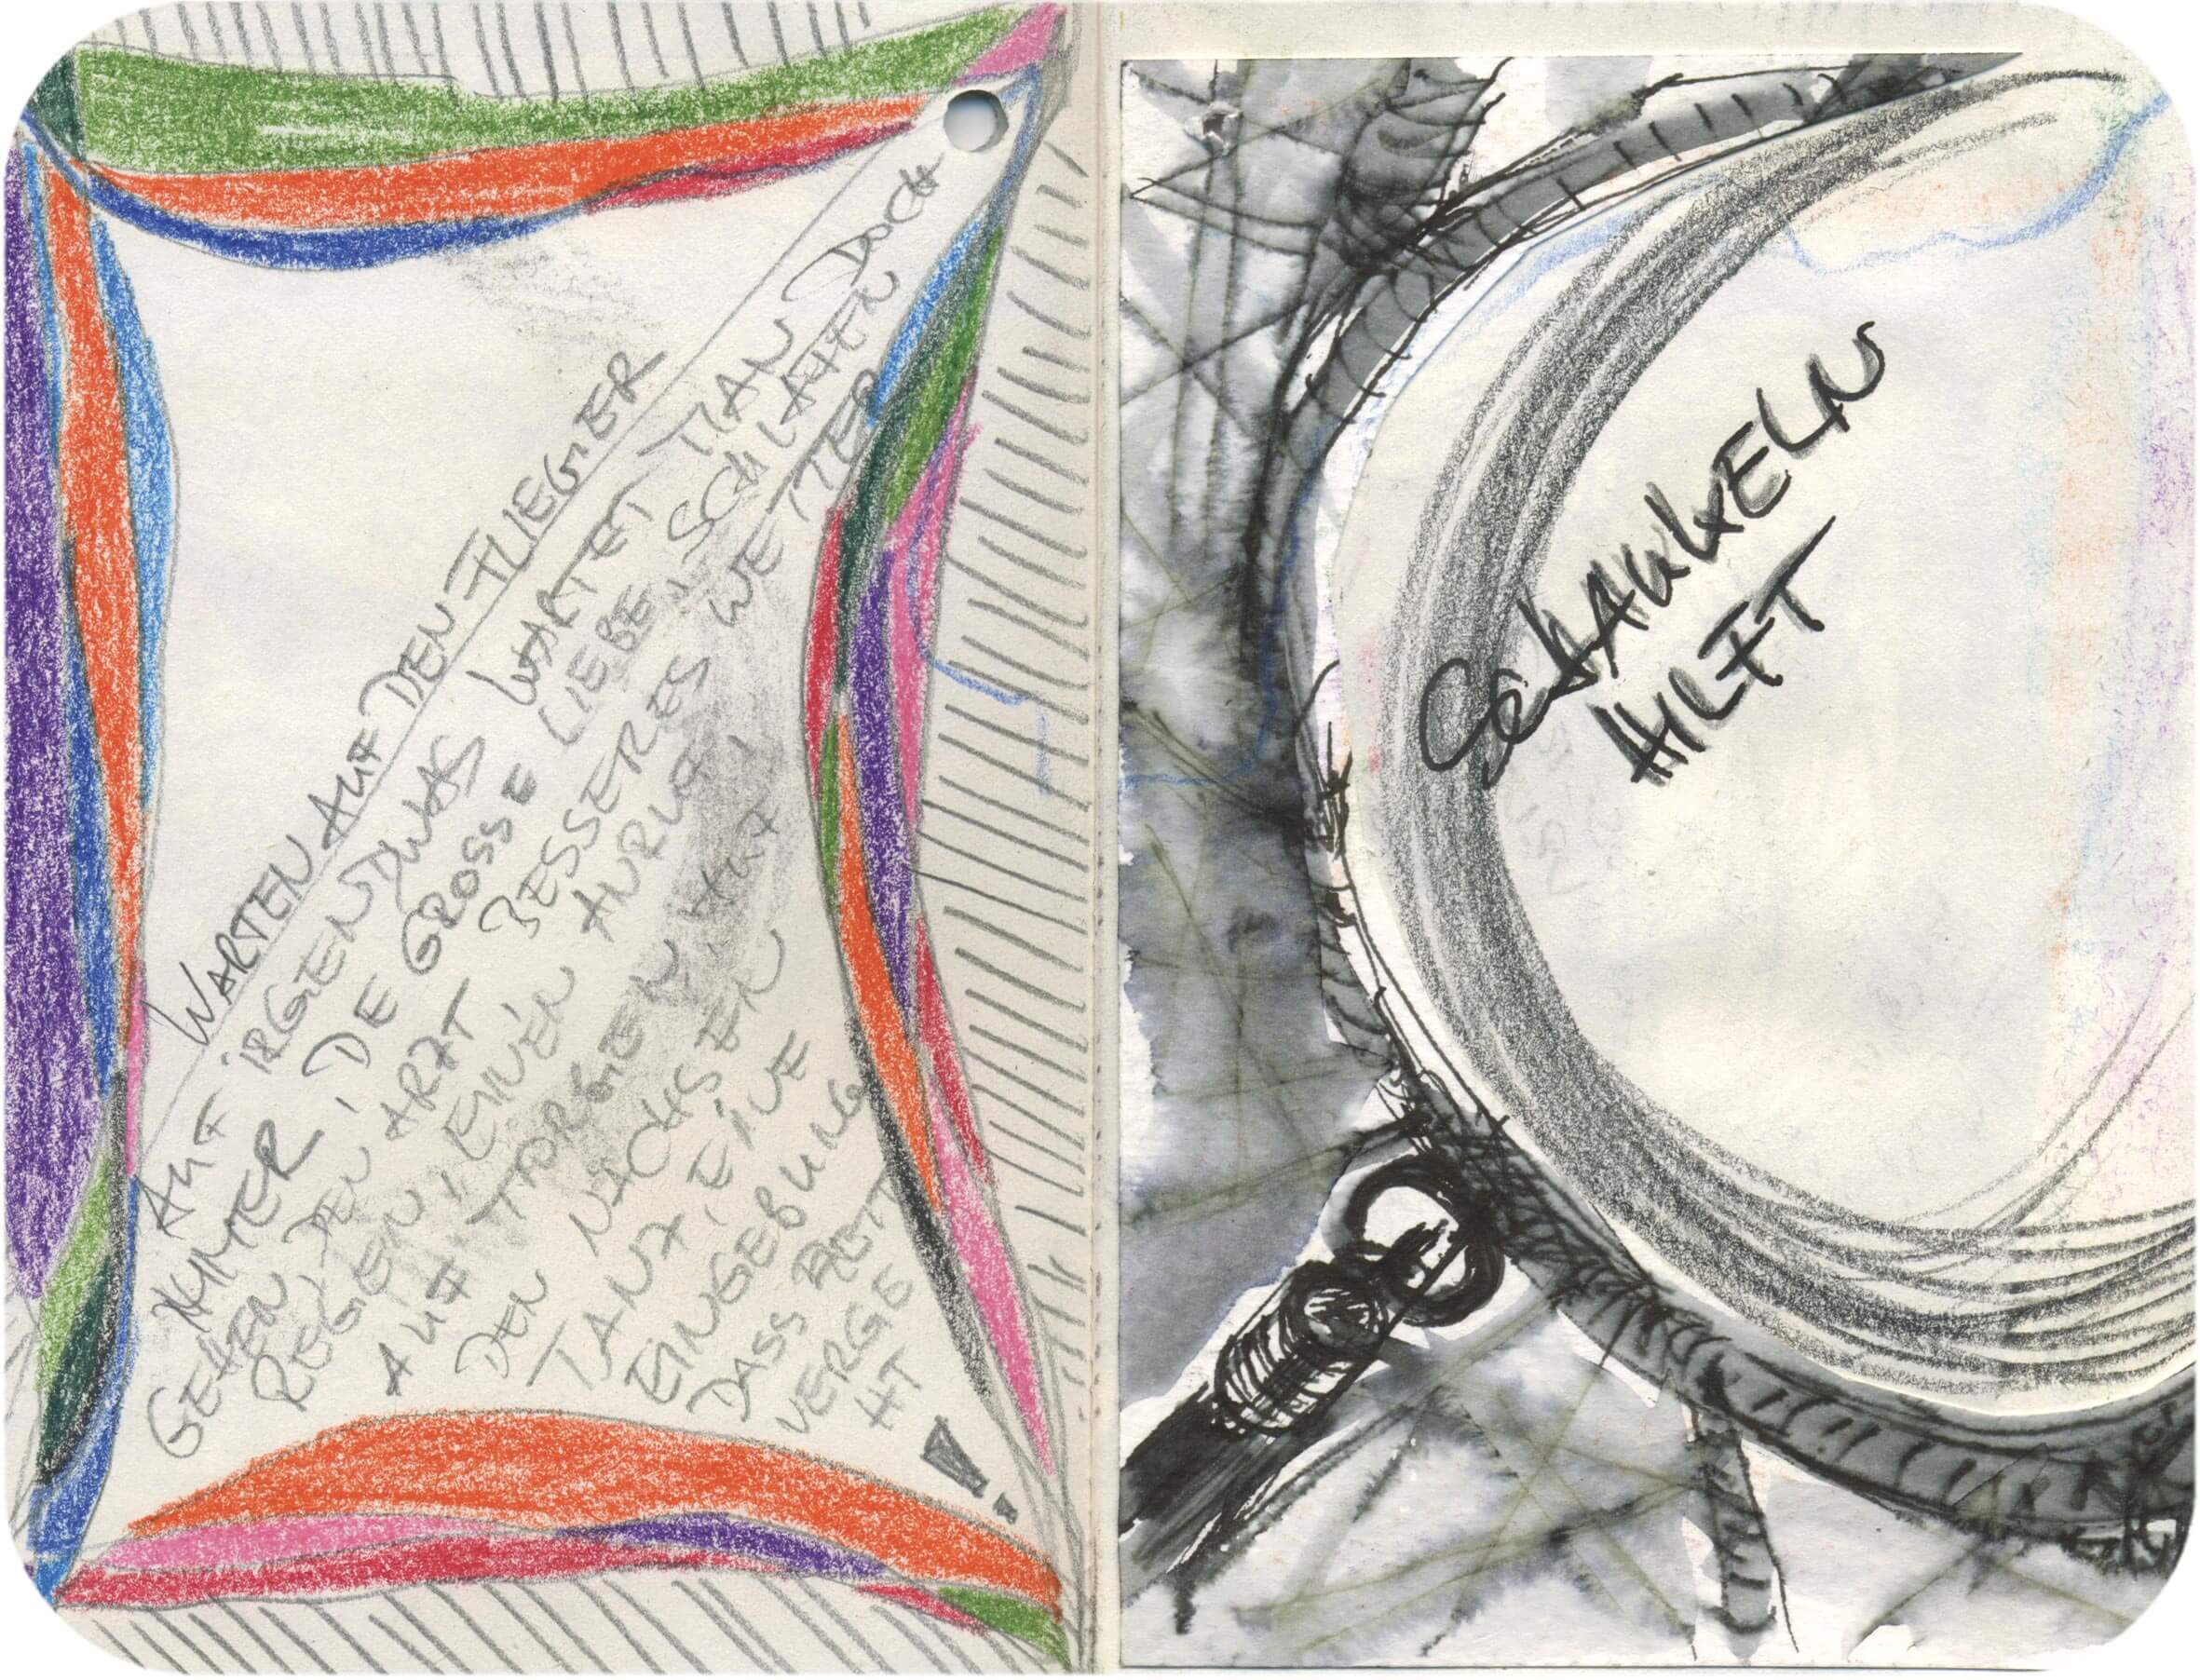 WARTEN AUF DEN FLIEGER
AUF IRGENDWAS WARTET MAN DOCH
IMMER, DE GROSSE LIEBE, SCHLAFEN
GEHEN, DEN ARZT BESSERES WETTER
REGEN, EINEN ANRUF,
AUF MORGEN, AUF
DEN NÄCHSEN
TANZ, EINE
EINGEBUNG
DASS ZEIT
VERGE
HT
!
SCHAUKELN
HILFT